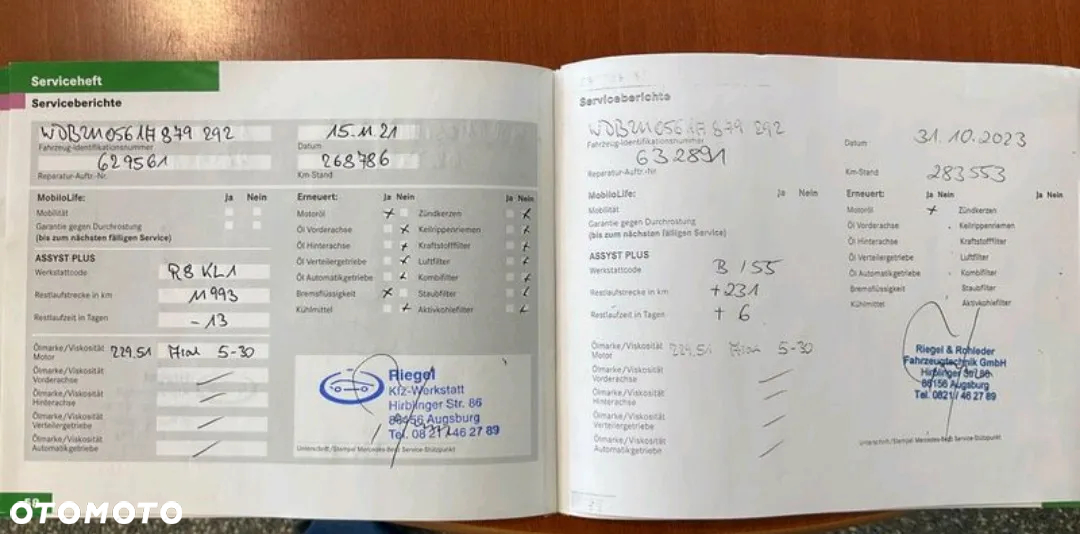 Serviceheft
Serviceberichte
WDB2110561A879 292
Fahrzeug-Identifikationsnummer
15.11.21
Datum
629561
Reparatur-Auftr.-Nr.
268786
Km-Stand
MobiloLife: Ja Nein
Mobilität
Garantie gegen Durchrostung
(bis zum nächsten fälligen Service)
ASSYST PLUS
Werkstattcode
Restlaufstrecke in km 11993
Restlaufzeit in Tagen -13
Ölmarke/Viskosität
Motor 229.51 5-30
Ölmarke/Viskosität
Vorderachse
Ölmarke/Viskosität
Hinterachse
Ölmarke/Viskosität
Verteilergetriebe
Ölmarke/Viskosität
Automatikgetriebe
Erneuert: Ja Nein Ja Nein
Motoröl Zündkerzen
Öl Vorderachse Keilrippenriemen
Öl Hinterachse Kraftstofffilter
Öl Verteilergetriebe Luftfilter
Öl Automatikgetriebe Kombifilter
Bremsflüssigkeit Staubfilter
Kühlmittel Aktivkohlefilter
Riegel
Kfz-Werkstatt
Hirblinger Str. 86
86156 Augsburg
Tel. 08 21 / 46 27 89
Unterschrift/Stempel Mercedes-Benz Service-Stützpunkt
58
OTOMOTO
Serviceberichte
WDB2110561A879 292
Fahrzeug-Identifikationsnummer
31.10.2023
Datum
632891
Reparatur-Auftr.-Nr.
283553
Km-Stand
MobiloLife: Ja Nein
Mobilität
Garantie gegen Durchrostung
(bis zum nächsten fälligen Service)
ASSYST PLUS
Werkstattcode B 155
Restlaufstrecke in km +231
Restlaufzeit in Tagen + 6
Ölmarke/Viskosität
Motor 229.51 5-30
Ölmarke/Viskosität
Vorderachse
Ölmarke/Viskosität
Hinterachse
Ölmarke/Viskosität
Verteilergetriebe
Ölmarke/Viskosität
Automatikgetriebe
Erneuert: Ja Nein Ja Nein
Motoröl Zündkerzen
Öl Vorderachse Keilrippenriemen
Öl Hinterachse Kraftstofffilter
Öl Verteilergetriebe Luftfilter
Öl Automatikgetriebe Kombifilter
Bremsflüssigkeit Staubfilter
Kühlmittel Aktivkohlefilter
Riegel & Rohleder
Fahrzeugtechnik GmbH
Hirblinger Str. 86
86156 Augsburg
Tel. 0821 / 46 27 89
Unterschrift/Stempel Mercedes-Benz Service-Stützpunkt